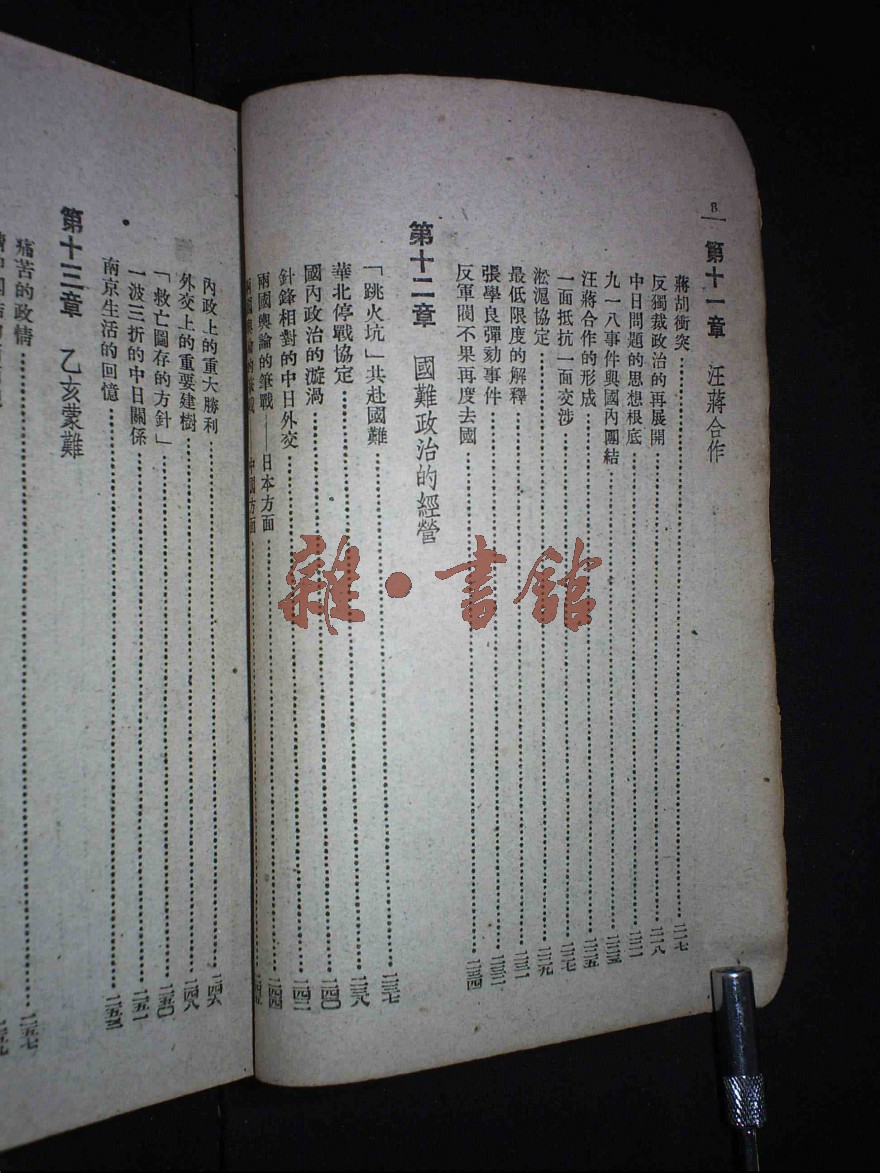 8
第十一章 汪蔣合作
蔣胡衝突……二一七
反獨裁政治的再展開……二一八
中日問題的思想根底……二二一
九一八事件與國內團結……二二三
汪蔣合作的形成……二二五
一面抵抗一面交涉……二二七
淞滬協定……二二九
最低限度的解釋……二三一
張學良彈劾事件……二三二
反軍閥不果再度去國……二三四
第十二章 國難政治的經營
「跳火坑」共赴國難……二三七
華北停戰協定……二三八
國內政治的漩渦……二四〇
針鋒相對的中日外交……二四二
兩國輿論的筆戰——日本方面……二四四
兩國輿論的筆戰 中國方面……二四五
內政上的重大勝利……二四六
外交上的重要建樹……二四八
「救亡圖存的方針」……二五〇
一波三折的中日關係……二五一
南京生活的回憶……二五三
第十三章 乙亥蒙難
痛苦的政情……二五七
雜·書館